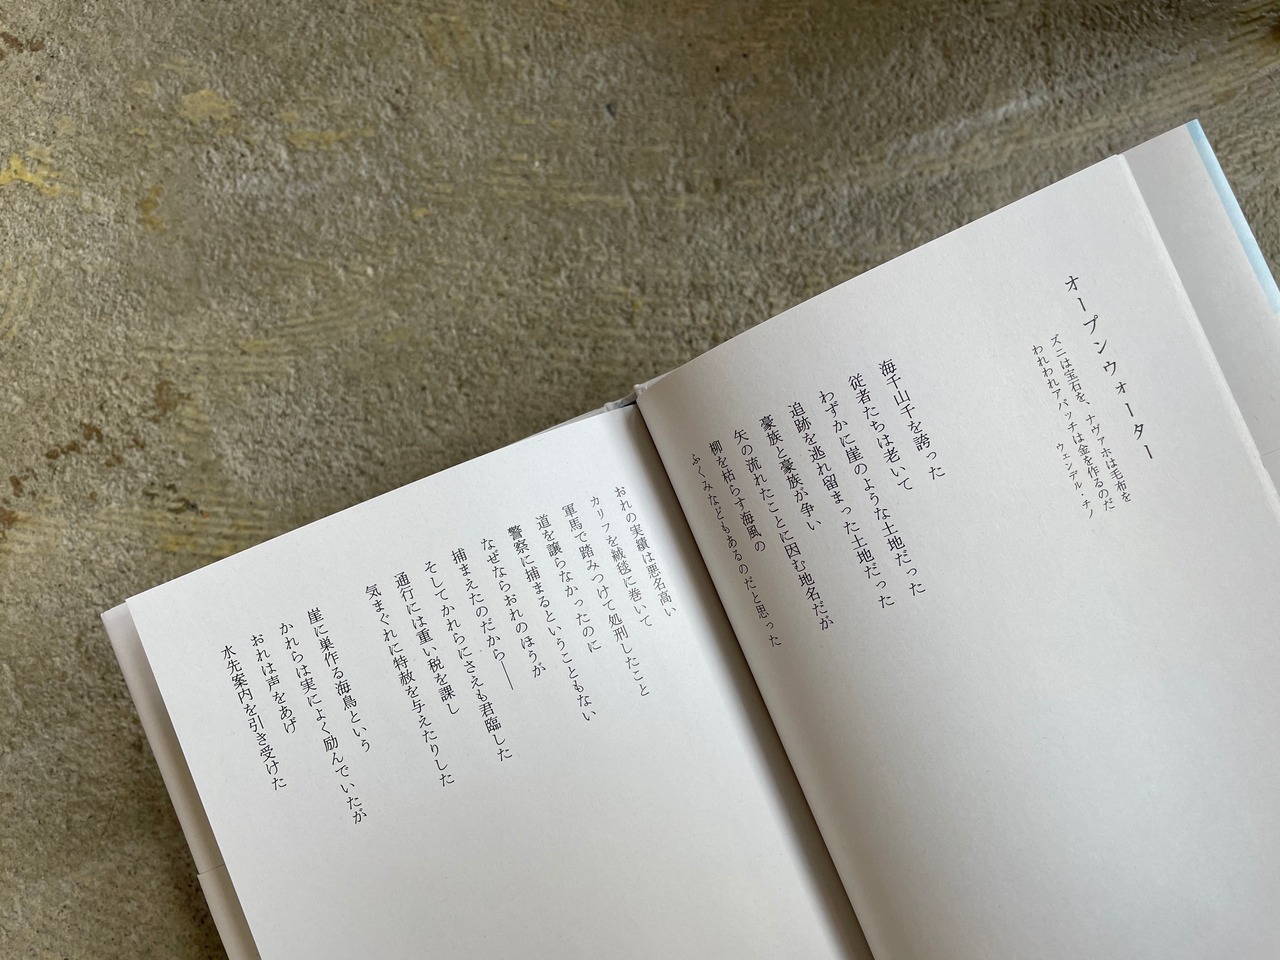 オープンウォーター
ズニは宝石を、ナヴァホは毛布を
われわれアパッチは金を作るのだ
ウェンデル・チノ
海千山千を誇った
従者たちは老いて
わずかに崖のような土地だった
追跡を逃れ留まった土地だった
豪族と豪族が争い
矢の流れたことに因む地名だが
柳を枯らす海風の
ふくみなどもあるのだと思った
おれの実績は悪名高い
カリフを絨毯に巻いて
軍馬で踏みつけて処刑したこと
道を譲らなかったのに
警察に捕まるということもない
なぜならおれのほうが
捕まえたのだから――
そしてかれらにさえも君臨した
通行には重い税を課し
気まぐれに特赦を与えたりした
崖に巣作る海鳥という
かれらは実によく励んでいたが
おれは声をあげ
水先案内を引き受けた